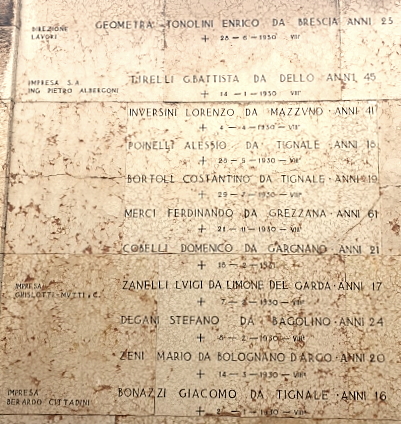 DIREZIONE LAVORI
GEOMETRA TONOLINI ENRICO DA BRESCIA ANNI 25
+ 28 - 6 - 1930 - VIIIº
IMPRESA S. A. ING PIETRO ALBERGONI
TIRELLI G.BATTISTA DA DELLO ANNI 45
+ 14 - 1 - 1930 - VIIIº
INVERSINI LORENZO DA MAZZVNO · ANNI 41
+ 4 - 4 - 1930 - VIIIº
POINELLI ALESSIO DA TIGNALE · ANNI 18
+ 1930 - VIIIº
BORTOLI COSTANTINO DA TIGNALE · ANNI 19
+ 1930 - VIIIº
MERCI FERDINANDO DA GREZZANA · ANNI 61
+ 21 - 11 - 1930
COBELLI DOMENCO DA GARGNANO · ANNI 21
+
IMPRESA GHISLOTTI-MVTTI e C.
ZANELLI LVIGI DA LIMONE DEL GARDA · ANNI 17
+ 1930 - VIIIº
DEGANI STEFANO DA BAGOLINO · ANNI 24
+ 1930 - VIIIº
ZENI MARIO DA BOLOGNANO D'ARGO · ANNI 20
+ 14 - 3 - 1930 - VIIIº
IMPRESA BERARDO CITTADINI
BONAZZI GIACOMO DA TIGNALE · ANNI 16
+ 1930 - VIIIº